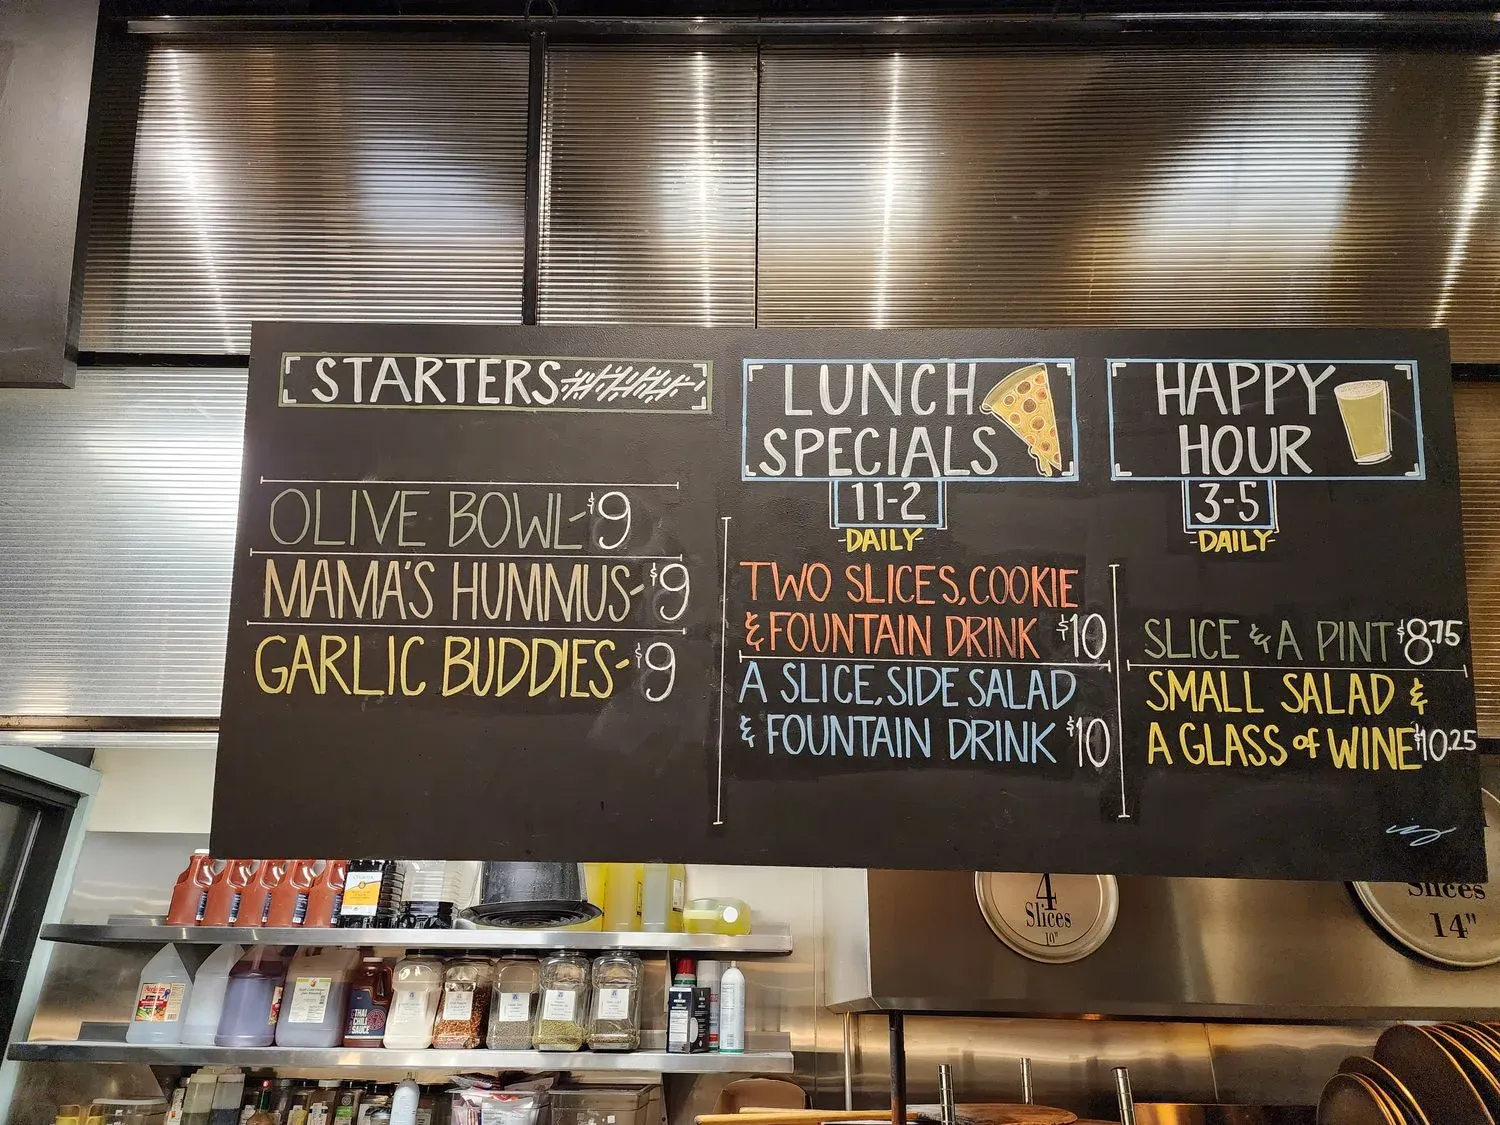 STARTERS
OLIVE BOWL-$9
MAMA'S HUMMUS-$9
GARLIC BUDDIES-$9
LUNCH
SPECIALS
11-2
-DAILY-
TWO SLICES, COOKIE
& FOUNTAIN DRINK $10
A SLICE, SIDE SALAD
& FOUNTAIN DRINK $10
HAPPY
HOUR
3-5
-DAILY-
SLICE & A PINT $8.75
SMALL SALAD &
A GLASS of WINE $10.25
4
Slices
10"
Slices
14"
THAI
CHILI
SAUCE